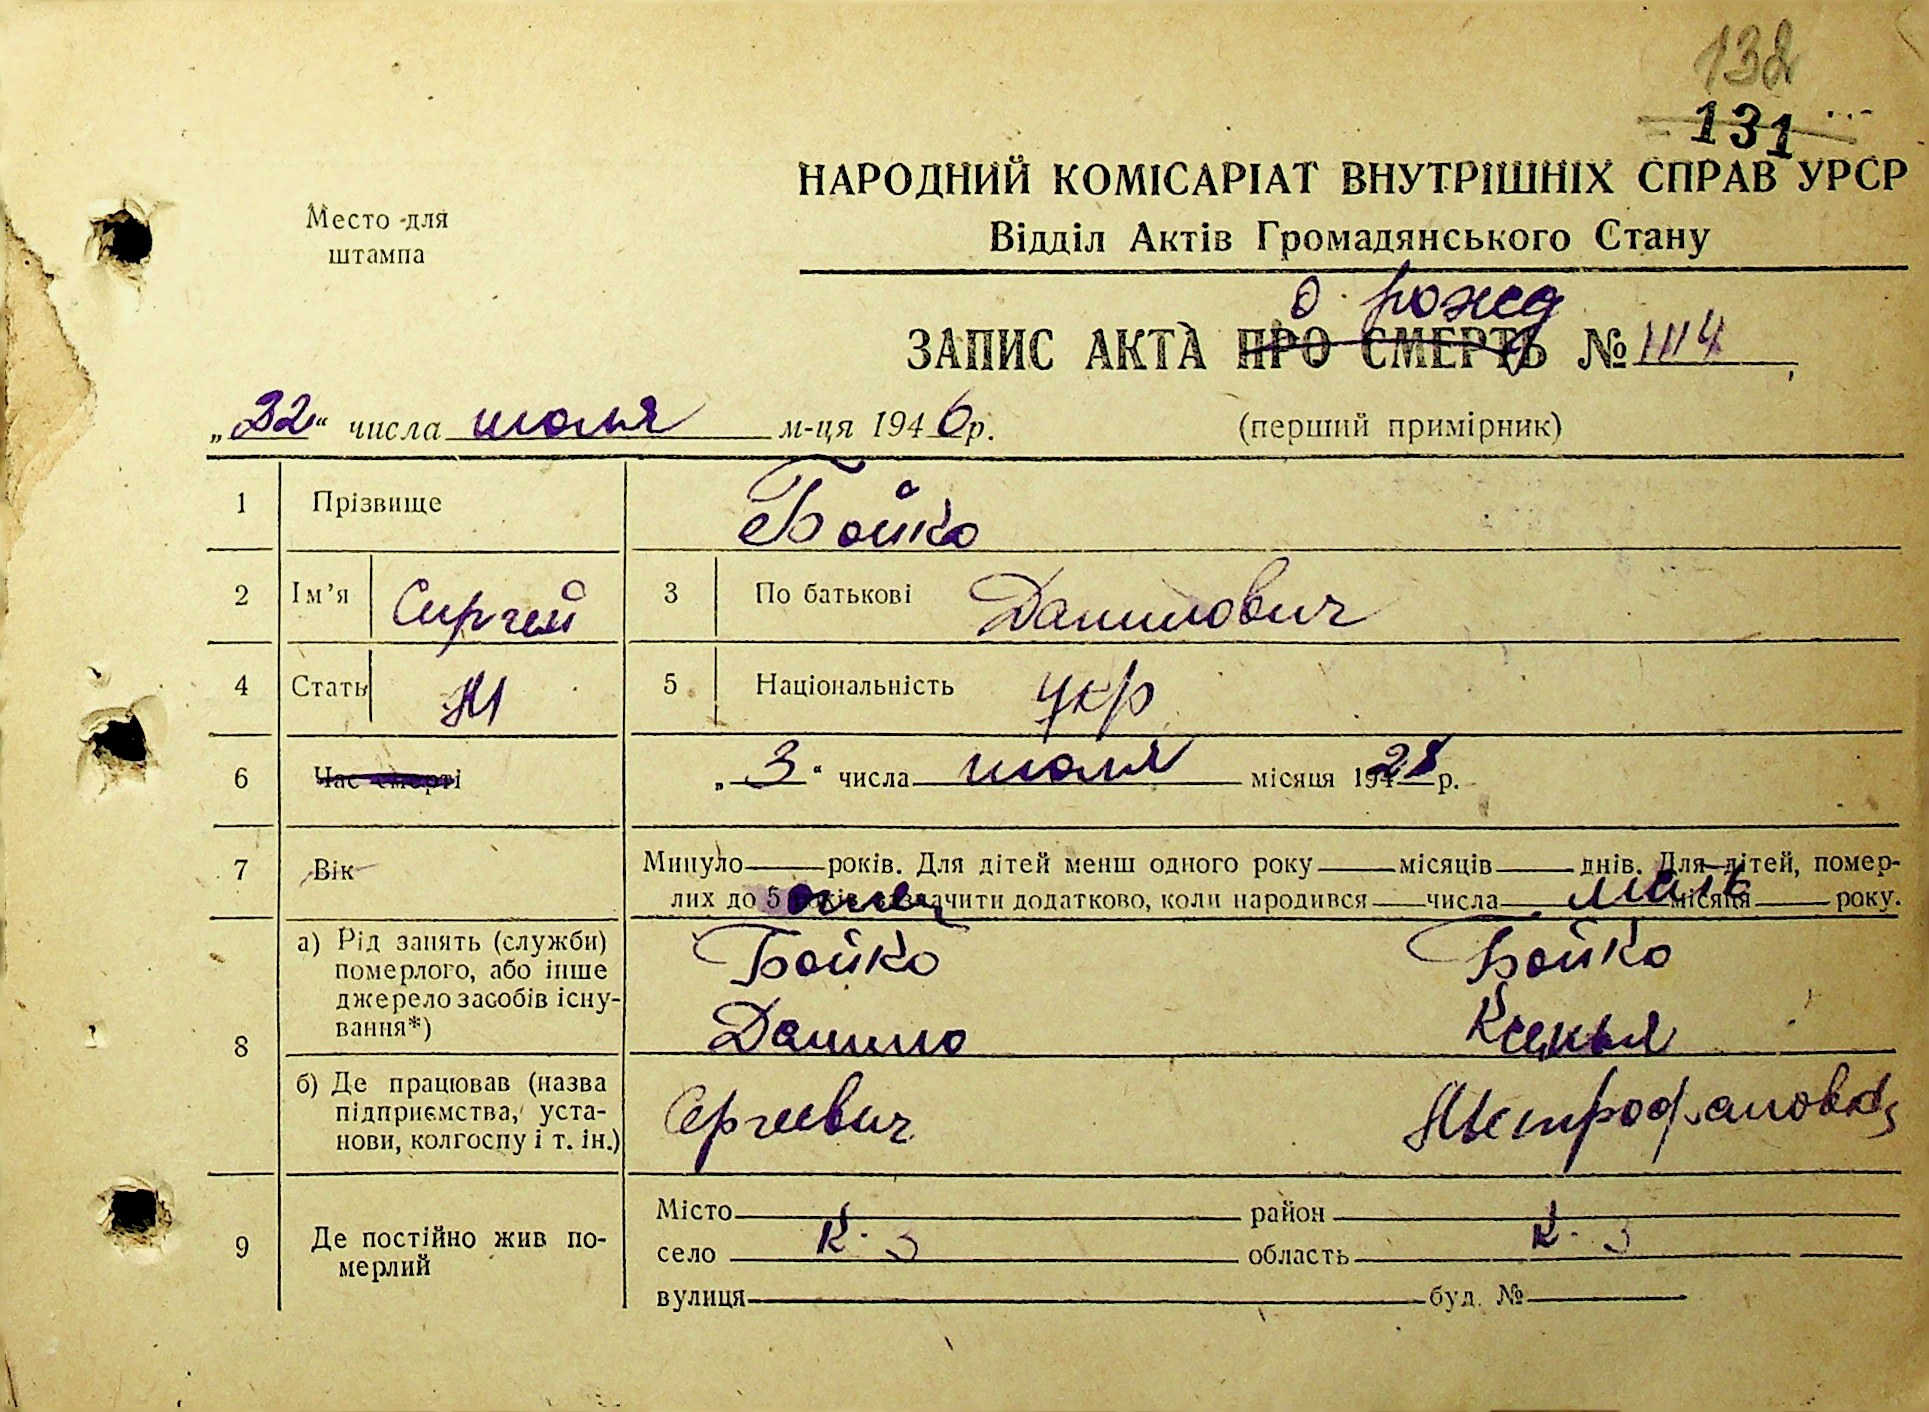 132
131
Место для
штампа
НАРОДНИЙ КОМІСАРІАТ ВНУТРІШНІХ СПРАВ УРСР
Відділ Актів Громадянського Стану
о рожд
ЗАПИС АКТА ПРО СМЕРТЬ № 1114
„22“ числа июля м-ця 1946 р. (перший примірник)
1 Прізвище Бойко
2 Ім’я Сергей 3 По батькові Данилович
4 Стать М 5 Національність укр
6 Час смерті „3“ числа июля місяця 1928 р.
7 Вік Минуло років. Для дітей менш одного року місяців днів. Для дітей, померлих до 5 років зазначити додатково, коли народився числа місяця року.
отец мать
8 а) Рід занять (служби) померлого, або інше джерело засобів існування*) Бойко Бойко
Данило Ксенья
б) Де працював (назва підприємства, установи, колгоспу і т. ін.) Сергеевич Митрофановна
9 Де постійно жив померлий Місто район
К. З К. З
село область
вулиця буд. №